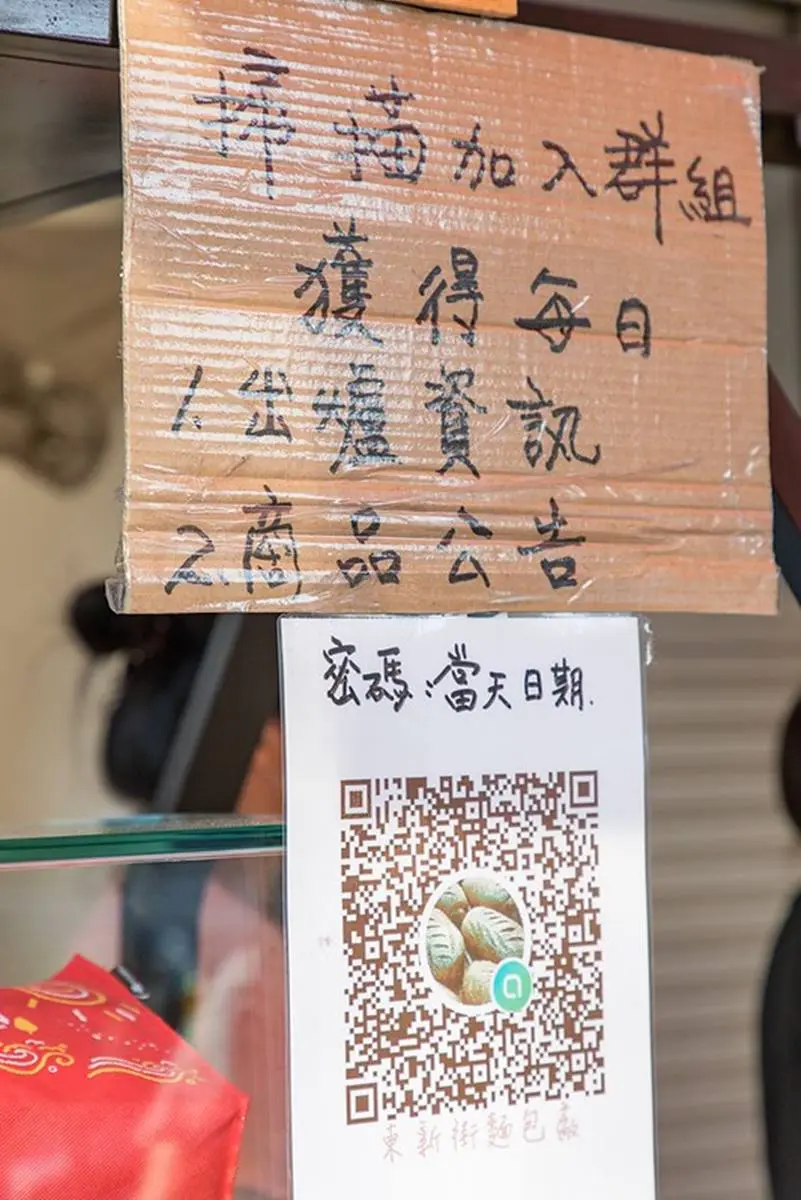 掃描加入群組
獲得每日
1.出爐資訊
2.商品公告
密碼:當天日期.
東新街麵包廠